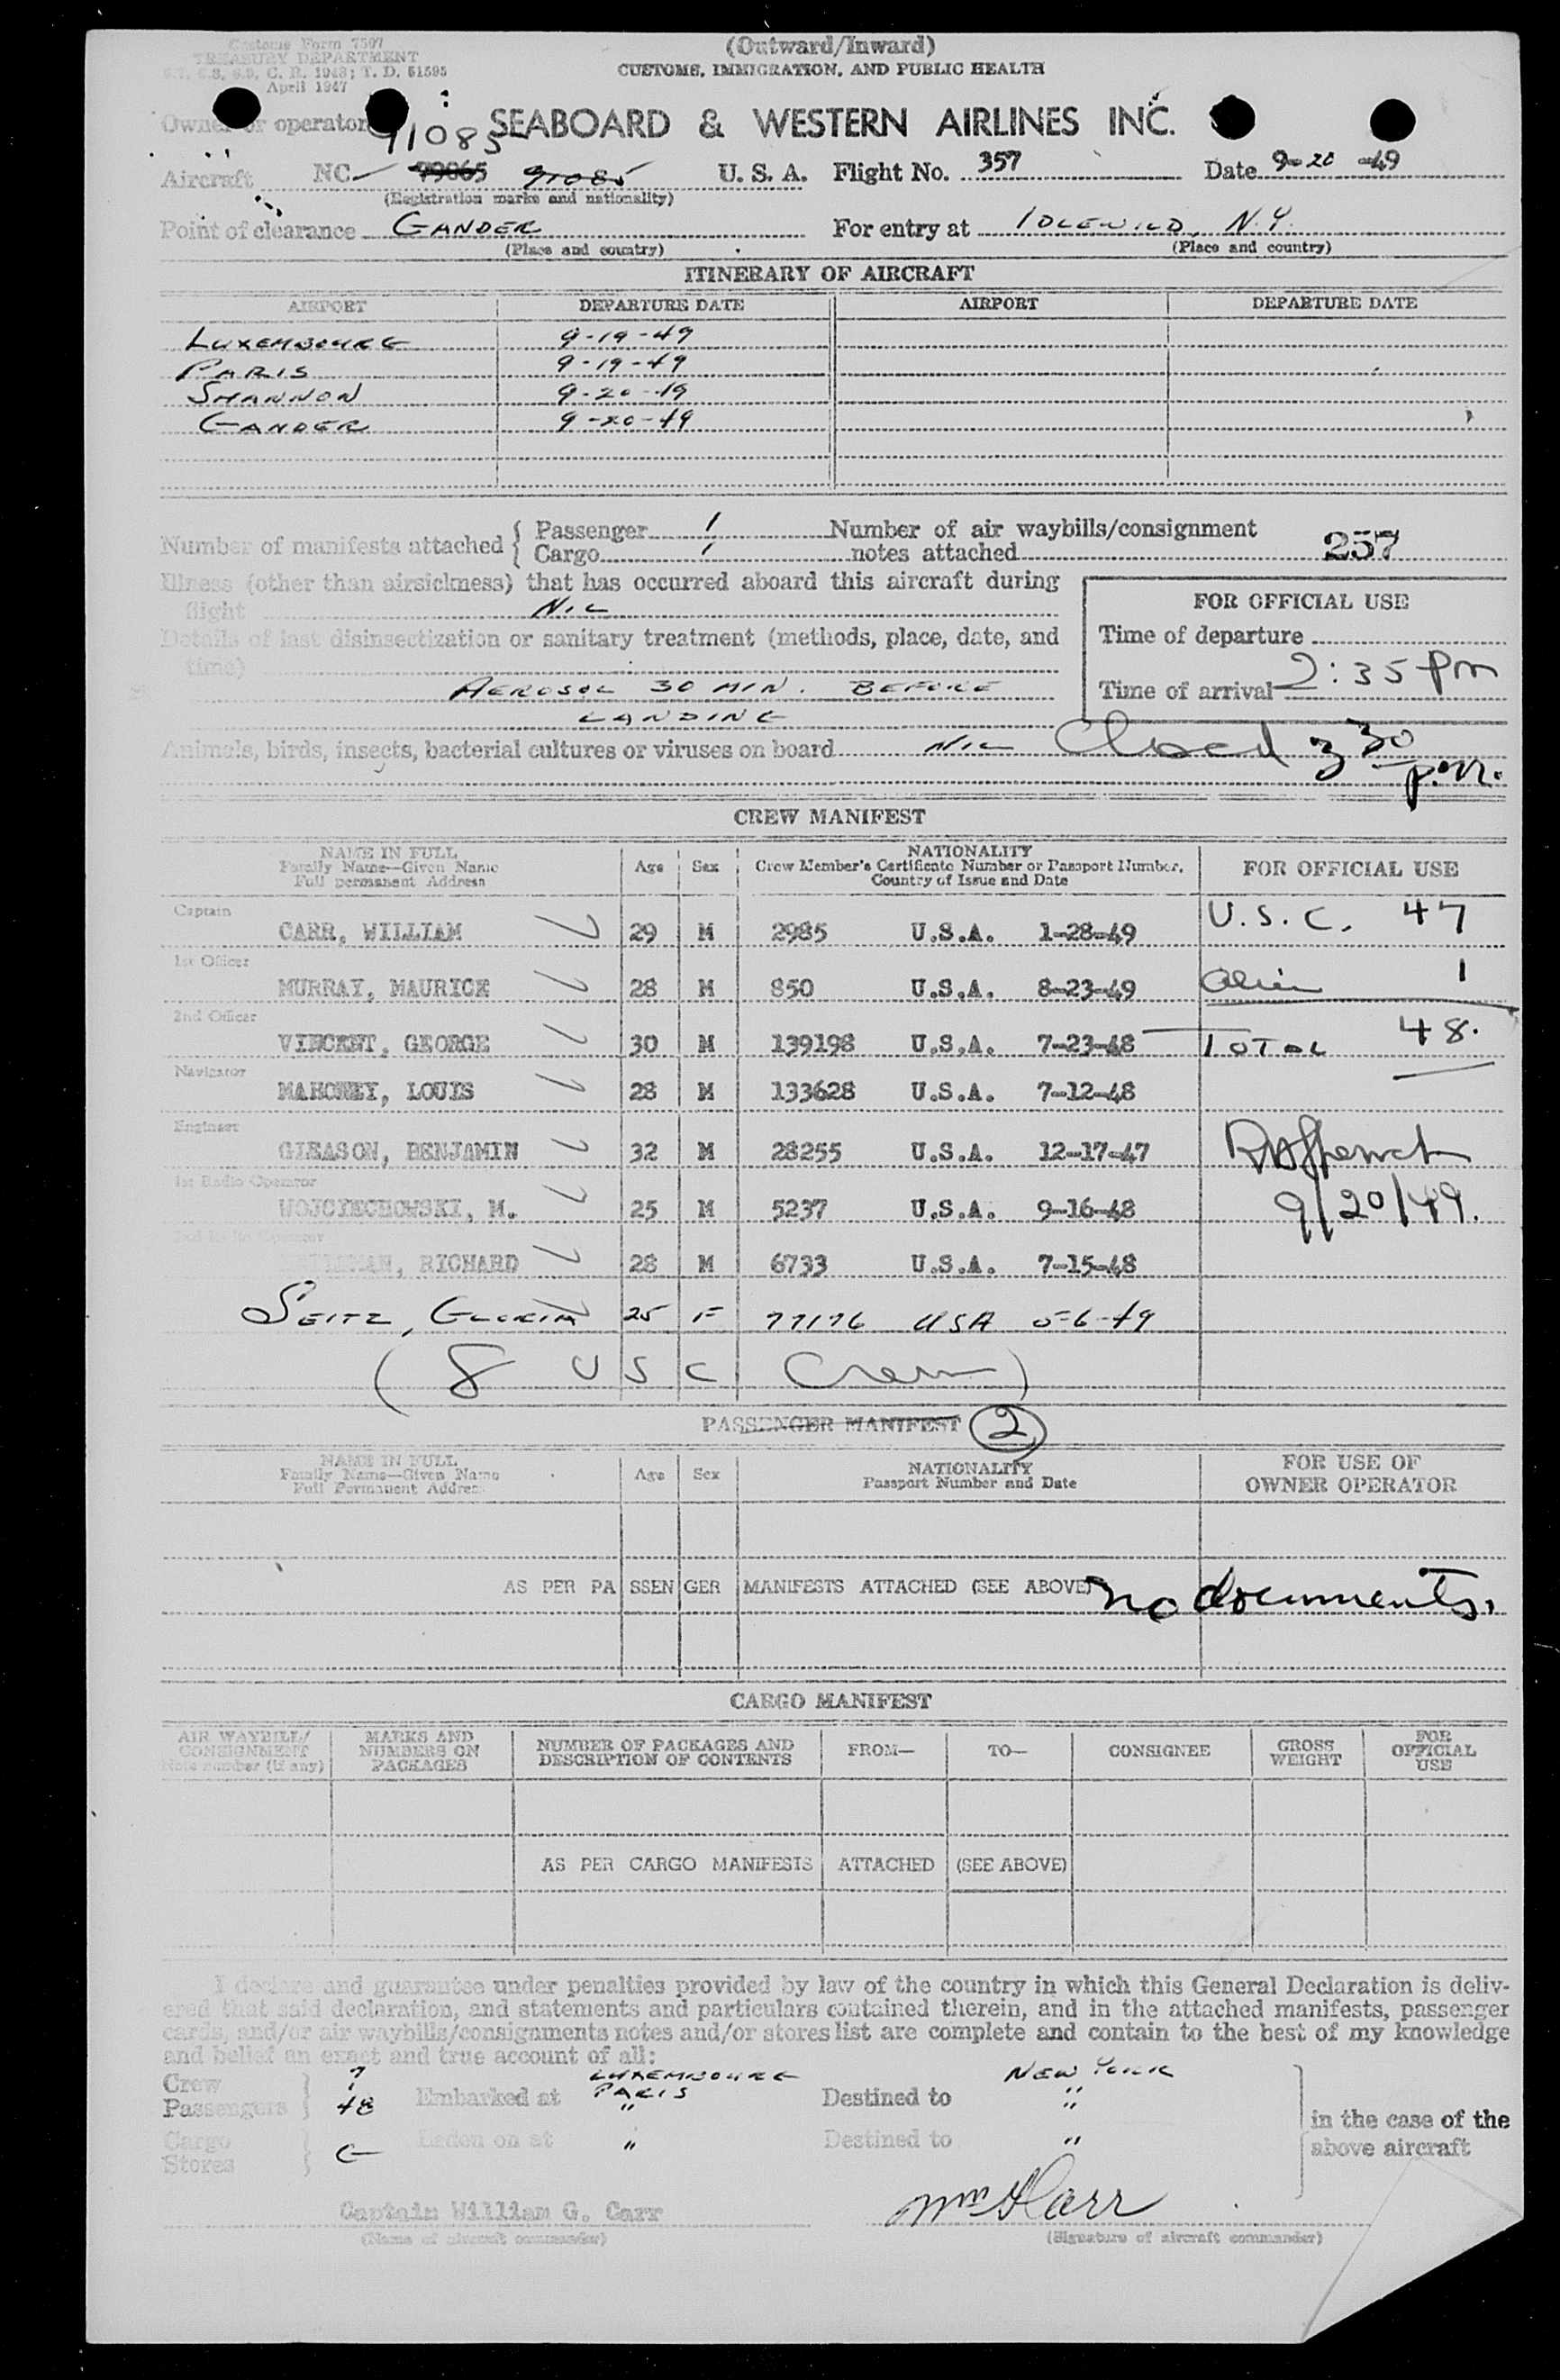 (Outward/Inward)
Customs Form 7507
TREASURY DEPARTMENT
CUSTOMS, IMMIGRATION, AND PUBLIC HEALTH
April 1947
Owner or operator SEABOARD & WESTERN AIRLINES INC.
91085
Aircraft NC 91085 U. S. A. Flight No. 357 Date 9-20-49
(Registration marks and nationality)
Point of clearance GANDER For entry at IDLEWILD, N.Y.
(Place and country) (Place and country)
ITINERARY OF AIRCRAFT
AIRPORT DEPARTURE DATE AIRPORT DEPARTURE DATE
LUXEMBOURG 9-19-49
PARIS 9-19-49
SHANNON 9-20-49
GANDER 9-20-49
Number of manifests attached { Passenger 1 Number of air waybills/consignment
Cargo 1 notes attached 257
Illness (other than airsickness) that has occurred aboard this aircraft during
flight NIL
FOR OFFICIAL USE
Details of last disinsectization or sanitary treatment (methods, place, date, and
time)
Time of departure
AEROSOL 30 MIN. BEFORE
LANDING
Time of arrival 2:35 pm
Animals, birds, insects, bacterial cultures or viruses on board NIL Closed 3 30 p.m.
CREW MANIFEST
NAME IN FULL
Family Name—Given Name
Full permanent Address
Age Sex
NATIONALITY
Crew Member's Certificate Number or Passport Number,
Country of Issue and Date
FOR OFFICIAL USE
Captain
CARR, WILLIAM 29 M 2985 U.S.A. 1-28-49 U.S.C. 47
1st Officer
MURRAY, MAURICE 28 M 850 U.S.A. 8-23-49 Alien 1
2nd Officer
VINCENT, GEORGE 30 M 139198 U.S.A. 7-23-48 TOTAL 48.
Navigator
MAHONEY, LOUIS 28 M 133628 U.S.A. 7-12-48
Engineer
GLEASON, BENJAMIN 32 M 28255 U.S.A. 12-17-47
1st Radio Operator
WOJCIECHOWSKI, M. 25 M 5237 U.S.A. 9-16-48 9/20/49.
2nd Radio Operator
RICHARD 28 M 6733 U.S.A. 7-15-48
SEITZ, GLORIA 25 F 77176 USA 5-6-49
(8 USC Crew)
PASSENGER MANIFEST 2
NAME IN FULL
Family Name—Given Name
Full Permanent Address
Age Sex
NATIONALITY
Passport Number and Date
FOR USE OF
OWNER OPERATOR
AS PER PASSENGER MANIFESTS ATTACHED (SEE ABOVE) no documents.
CARGO MANIFEST
AIR WAYBILL/
CONSIGNMENT
Note number (if any)
MARKS AND
NUMBERS ON
PACKAGES
NUMBER OF PACKAGES AND
DESCRIPTION OF CONTENTS
FROM— TO— CONSIGNEE
GROSS
WEIGHT
FOR
OFFICIAL
USE
AS PER CARGO MANIFESTS ATTACHED (SEE ABOVE)
I declare and guarantee under penalties provided by law of the country in which this General Declaration is deliv-
ered that said declaration, and statements and particulars contained therein, and in the attached manifests, passenger
cards, and/or air waybills/consignments notes and/or stores list are complete and contain to the best of my knowledge
and belief an exact and true account of all:
Crew 7 LUXEMBOURG NEW YORK
Passengers 48 Embarked at PARIS " Destined to "
Cargo Laden on at " Destined to "
Stores
in the case of the
above aircraft
Captain William G. Carr Wm G Carr
(Name of aircraft commander) (Signature of aircraft commander)